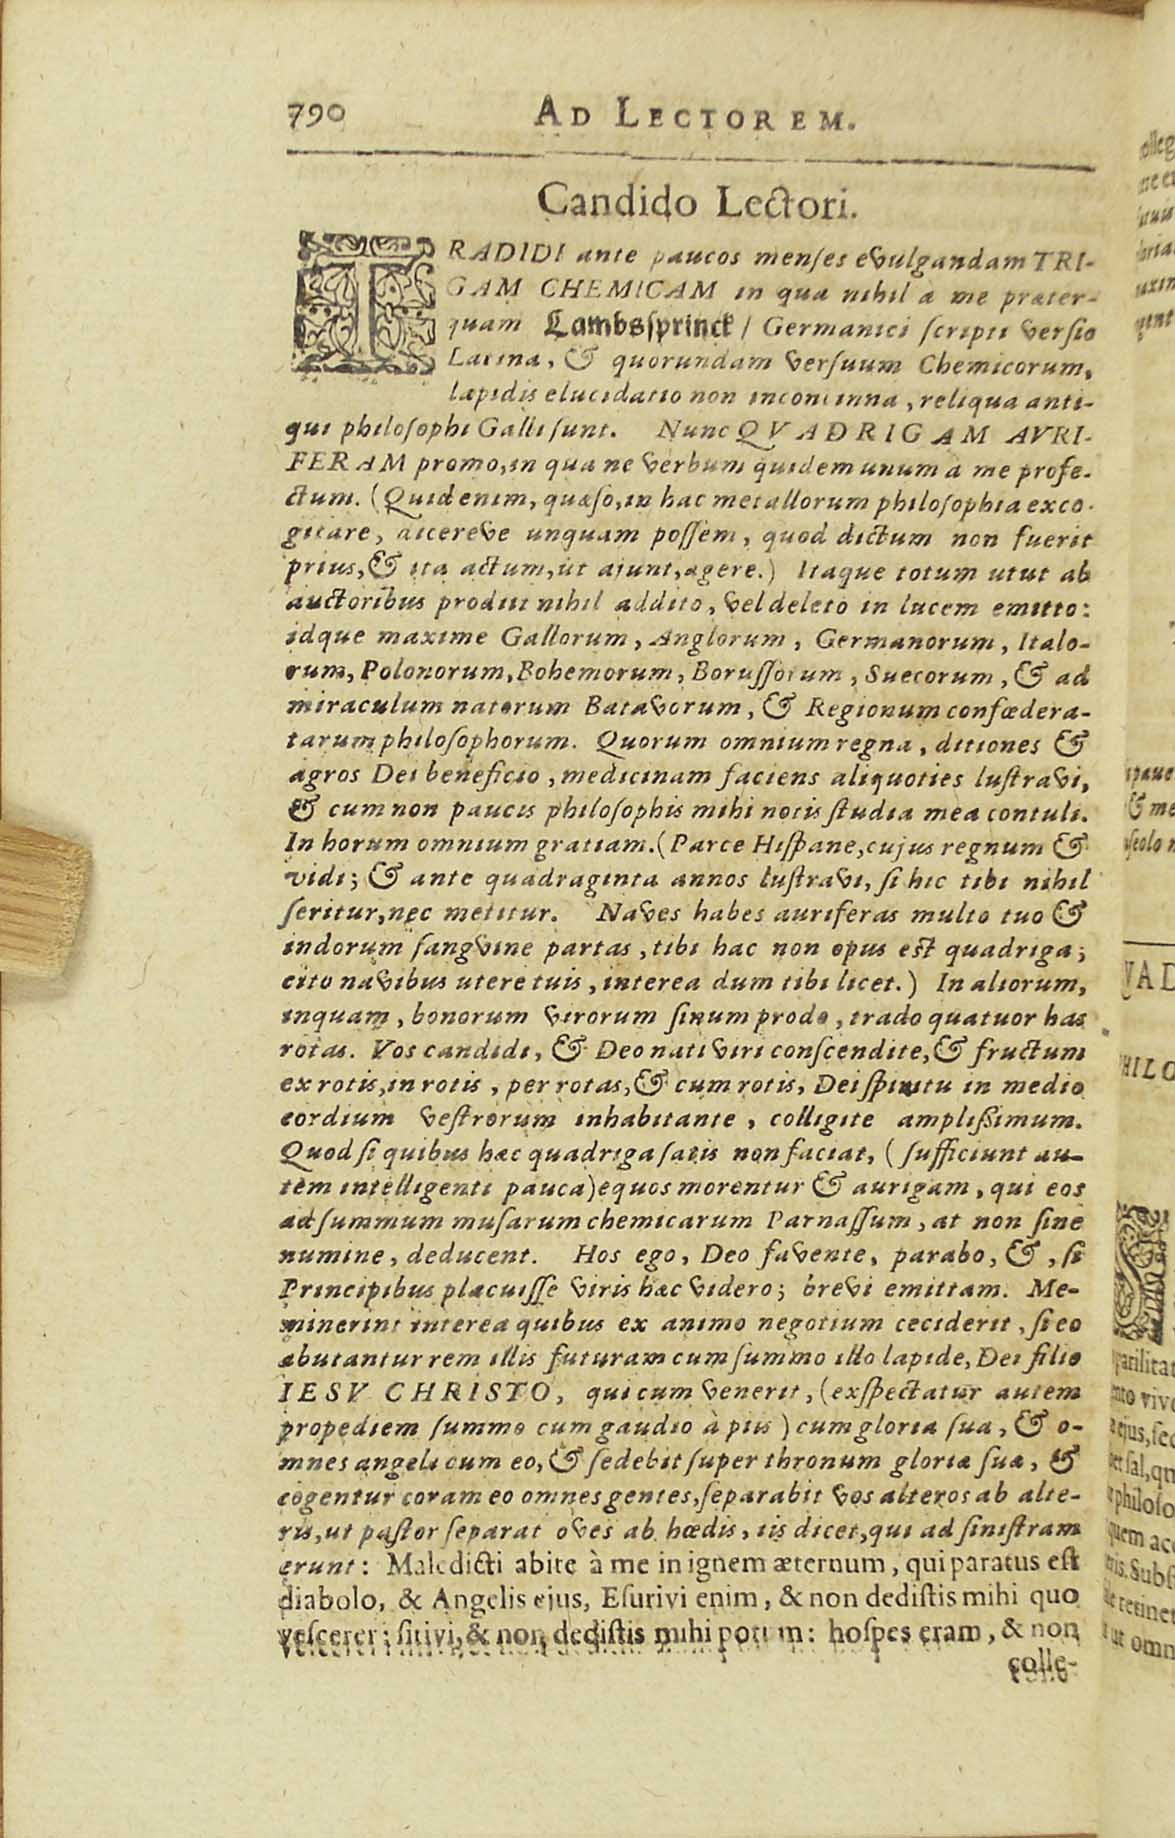 790 AD LECTOREM.
Candido Lectori.
TRADIDI ante paucos menses evulgandam TRI-
GAM CHEMICAM in qua nihil à me præter-
quam Lambssprinck / Germanici scripti versio
Latina, & quorundam versuum Chemicorum,
lapidis elucidatio non inconcinna, reliqua anti-
qui philosophi Galli sunt. Nunc QVADRIGAM AVRI-
FERAM promo, in qua ne verbum quidem unum a me profe-
ctum. (Quid enim, quæso, in hac metallorum philosophia exco-
gitare, dicereve unquam possem, quod dictum non fuerit
prius, & ita actum, ut ajunt, agere.) Itaque totum utut ab
auctoribus prodiit nihil addito, vel deleto in lucem emitto:
idque maxime Gallorum, Anglorum, Germanorum, Italo-
rum, Polonorum, Bohemorum, Borussorum, Suecorum, & ad
miraculum natorum Batavorum, & Regionum confœdera-
tarum philosophorum. Quorum omnium regna, ditiones &
agros Dei beneficio, medicinam faciens aliquoties lustravi,
& cum non paucis philosophis mihi notis studia mea contuli.
In horum omnium gratiam. (Parce Hispane, cujus regnum &
vidi; & ante quadraginta annos lustravi, si hic tibi nihil
seritur, nec metitur. Naves habes auriferas multo tuo &
indorum sangvine partas, tibi hac non opus est quadriga;
cito navibus utere tuis, interea dum tibi licet.) In aliorum,
inquam, bonorum virorum sinum prodo, trado quatuor has
rotas. Vos candidi, & Deo nati viri conscendite, & fructum
ex rotis, in rotis, per rotas, & cum rotis, Dei spiritu in medio
cordium vestrorum inhabitante, colligite amplissimum.
Quod si quibus hæc quadriga satis non faciat, (sufficiunt au-
tem intelligenti pauca) equos morentur & aurigam, qui eos
ad summum musarum chemicarum Parnassum, at non sine
numine, deducent. Hos ego, Deo favente, parabo, &, si
Principibus placuisse viris hæc videro; brevi emittam. Me-
minerint interea quibus ex animo negotium ceciderit, si eo
abutantur rem illis futuram cum summo illo lapide, Dei filio
IESV CHRISTO, qui cum venerit, (exspectatur autem
propediem summo cum gaudio à piis) cum gloria sua, & o-
mnes angeli cum eo, & sedebit super thronum gloriæ suæ, &
cogentur coram eo omnes gentes, separabit vos alteros ab alte-
ris, ut pastor separat oves ab hœdis, iis dicet, qui ad sinistram
erunt: Maledicti abite à me in ignem æternum, qui paratus est
diabolo, & Angelis ejus, Esurivi enim, & non dedistis mihi quo
vescerer; sitivi, & non dedistis mihi potum: hospes eram, & non
colle-